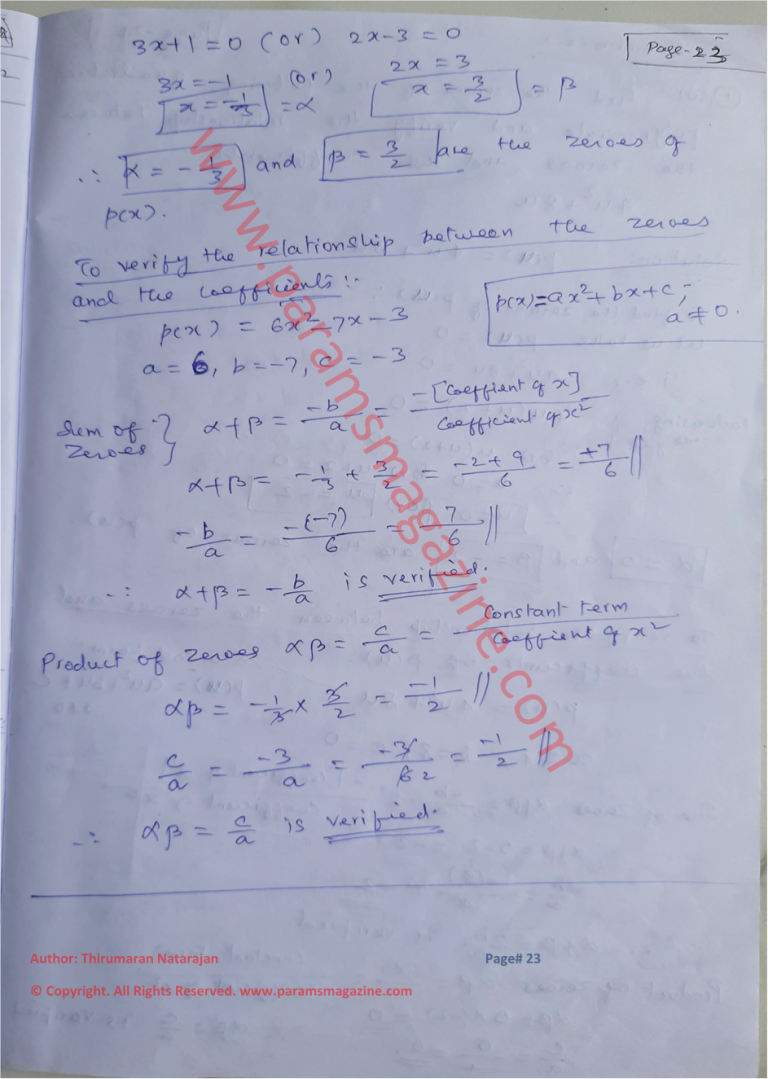 Page-23
3x+1=0 (or) 2x-3=0
3x=-1 (or) 2x=3
x=-1/3 =α x=3/2 = β
∴ α = -1/3 and β = 3/2 are the zeroes of
p(x).
To verify the relationship between the zeroes
and the coefficients:-
p(x)=ax²+bx+c;
a≠0.
p(x) = 6x²-7x-3
a=6, b=-7, c=-3
Sum of Zeroes} α+β = -b/a = -[Coeffient of x]/Coefficient of x²
α+β = -1/3 + 3/2 = -2+9/6 = +7/6//
-b/a = -(-7)/6 = 7/6 //
∴ α+β = -b/a is verified.
Product of zeroes αβ = c/a = Constant term/Coeffient of x²
αβ = -1/3 × 3/2 = -1/2 //
c/a = -3/a = -3/62 = -1/2 //
∴ αβ = c/a is verified.
www.paramsmagazine.com
Author: Thirumaran Natarajan Page# 23
© Copyright. All Rights Reserved. www.paramsmagazine.com